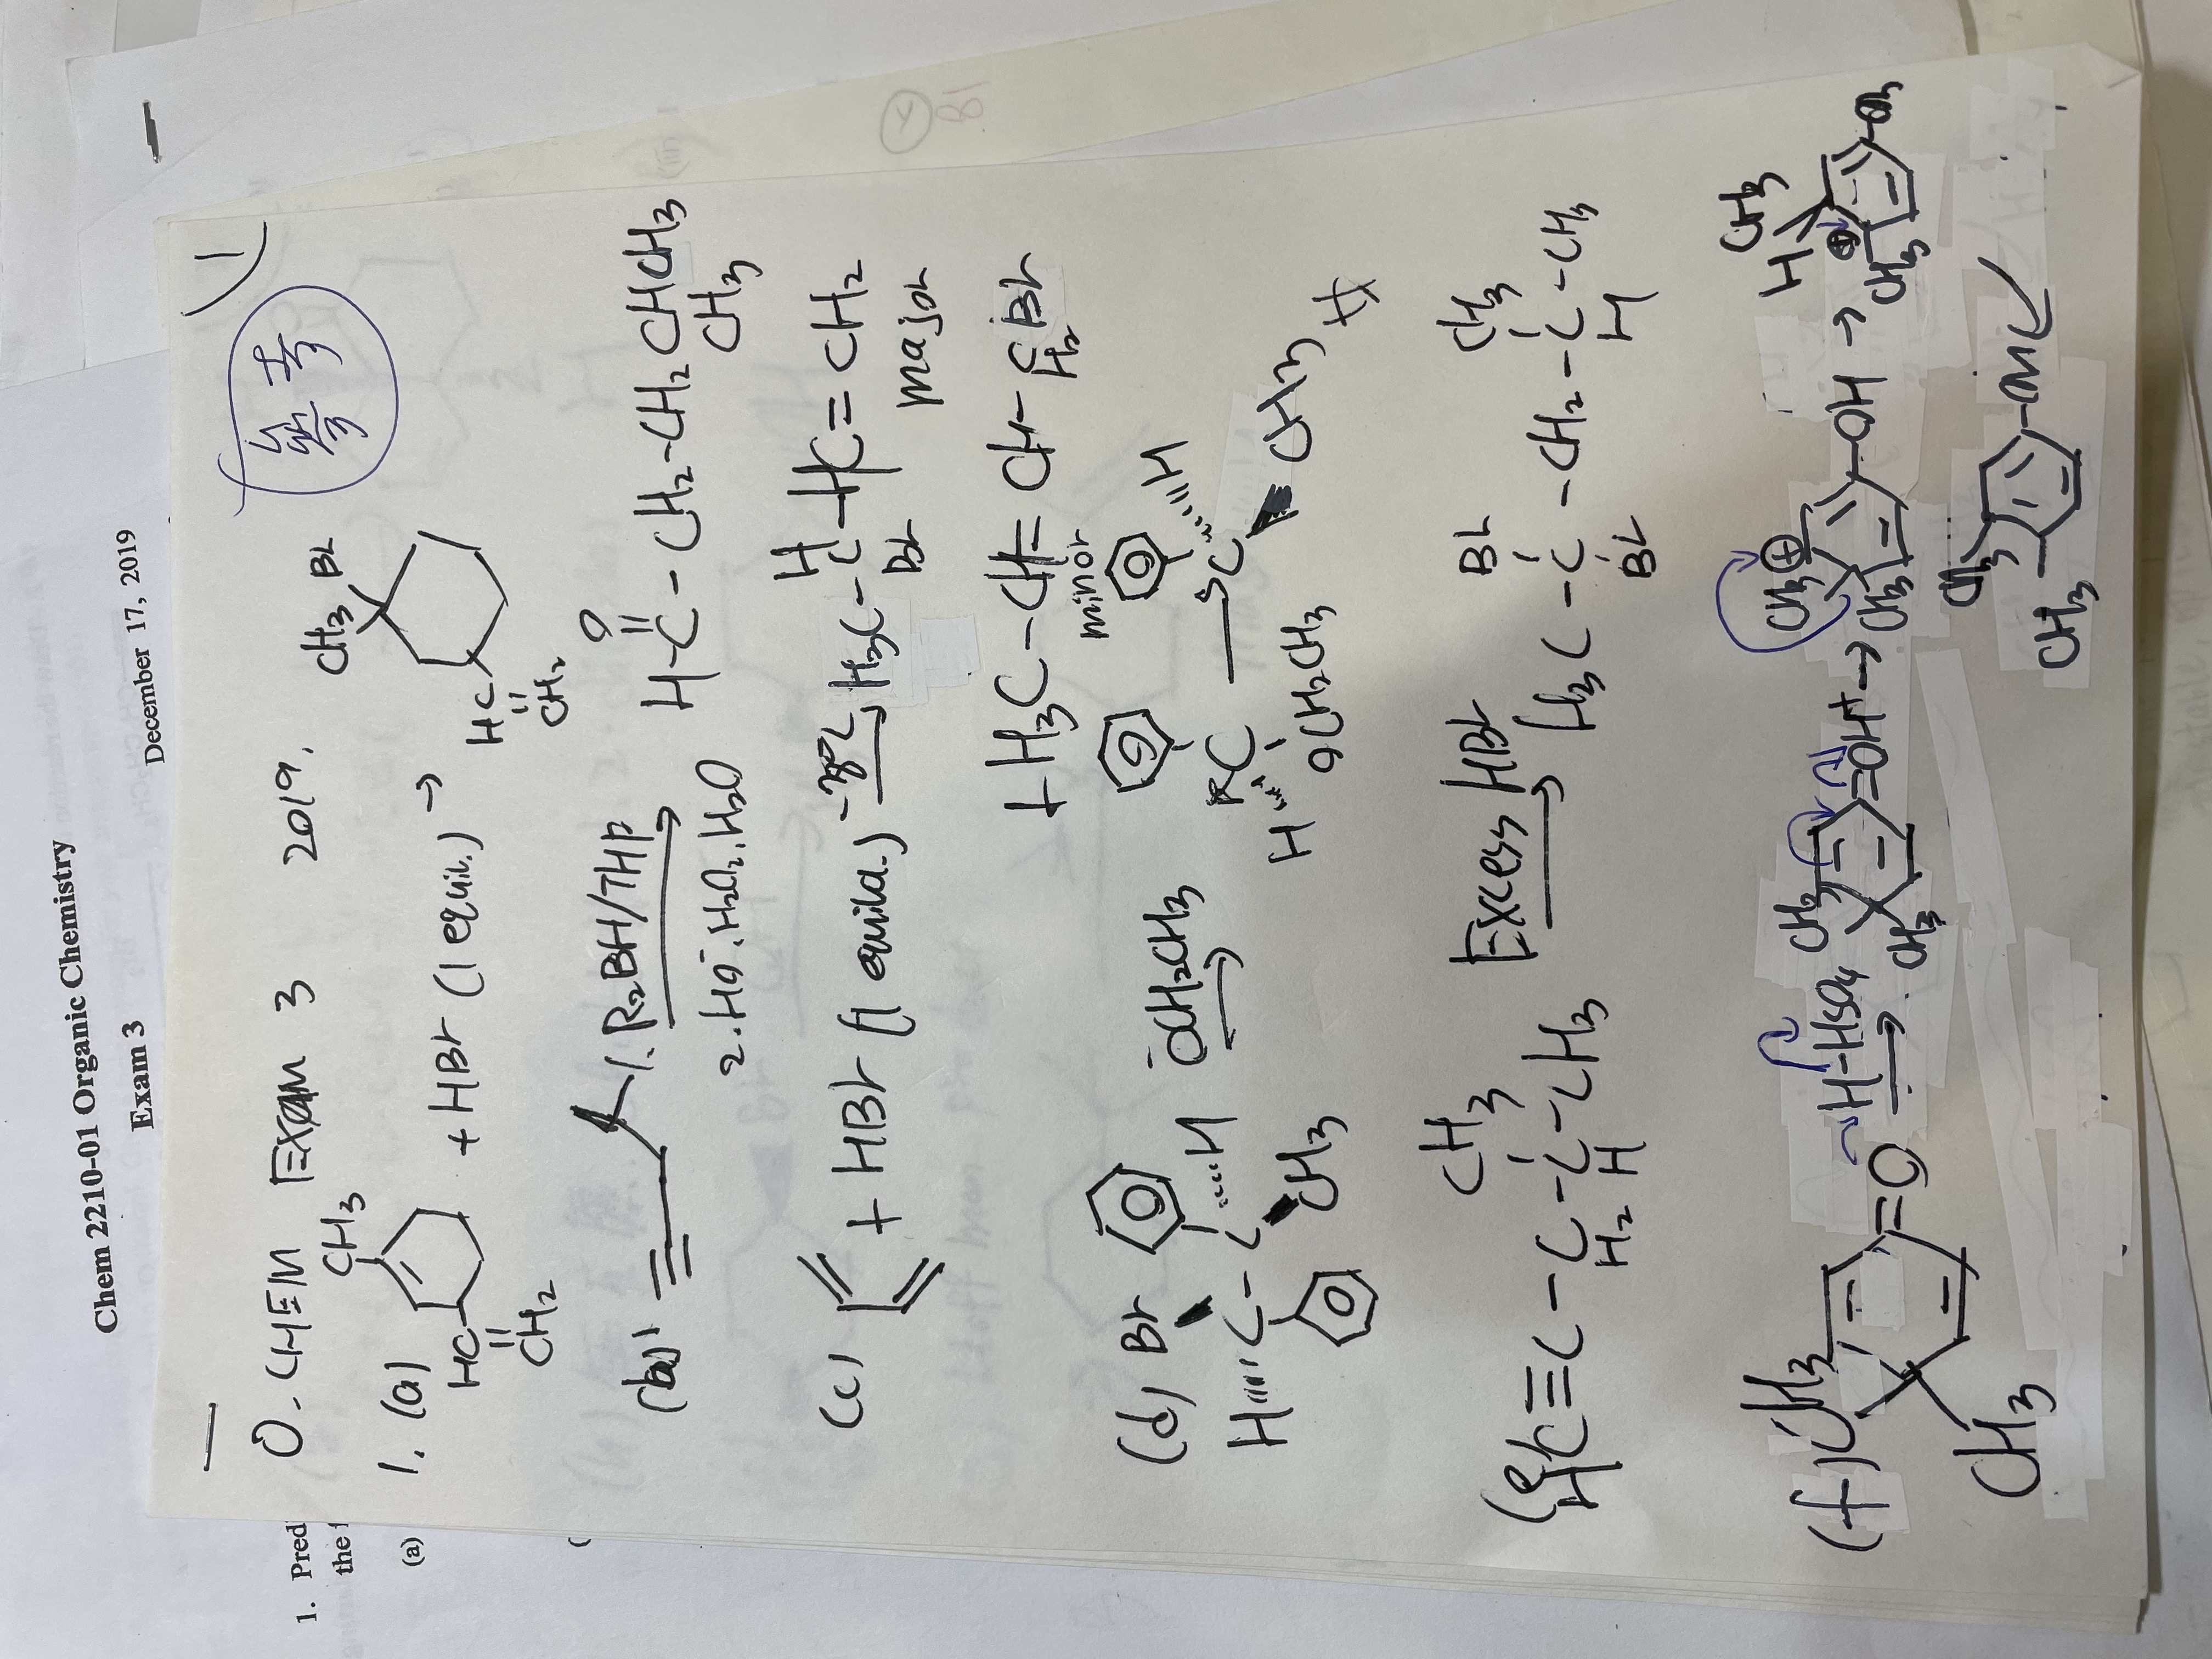 Chem 2210-01 Organic Chemistry
Exam 3
December 17, 2019
1. Pred
the f
(a)
(
1
O-CHEM EXAM 3 2019.
1. (a)
CH3
HC
CH2
+ HBr (1 equiv.) →
CH3 Br
HC
CH2
(b)
1. R2BH/THF
2. HO⁻, H2O2, H2O
O
H-C-CH2-CH2CHCH3
CH3
(c)
+ HBr (1 equiv.)
H
H3C-C-HC=CH2
Br
major
+ H3C-CH=CH-CBr
H2
minor
(d) Br
H C-C H
CH3
⁻OCH2CH3
R C S C H
H
OCH2CH3
CH3
(e)
CH3
HC≡C-C-C-CH3
H2 H
Excess HBr
Br CH3
H3C-C-CH2-C-CH3
Br H
(f) CH3
=O
CH3
H-HSO4
CH3
=OH+ →
CH3
CH3 +
CH3
-OH →
CH3
H
+
CH3
CH3
CH3
18.